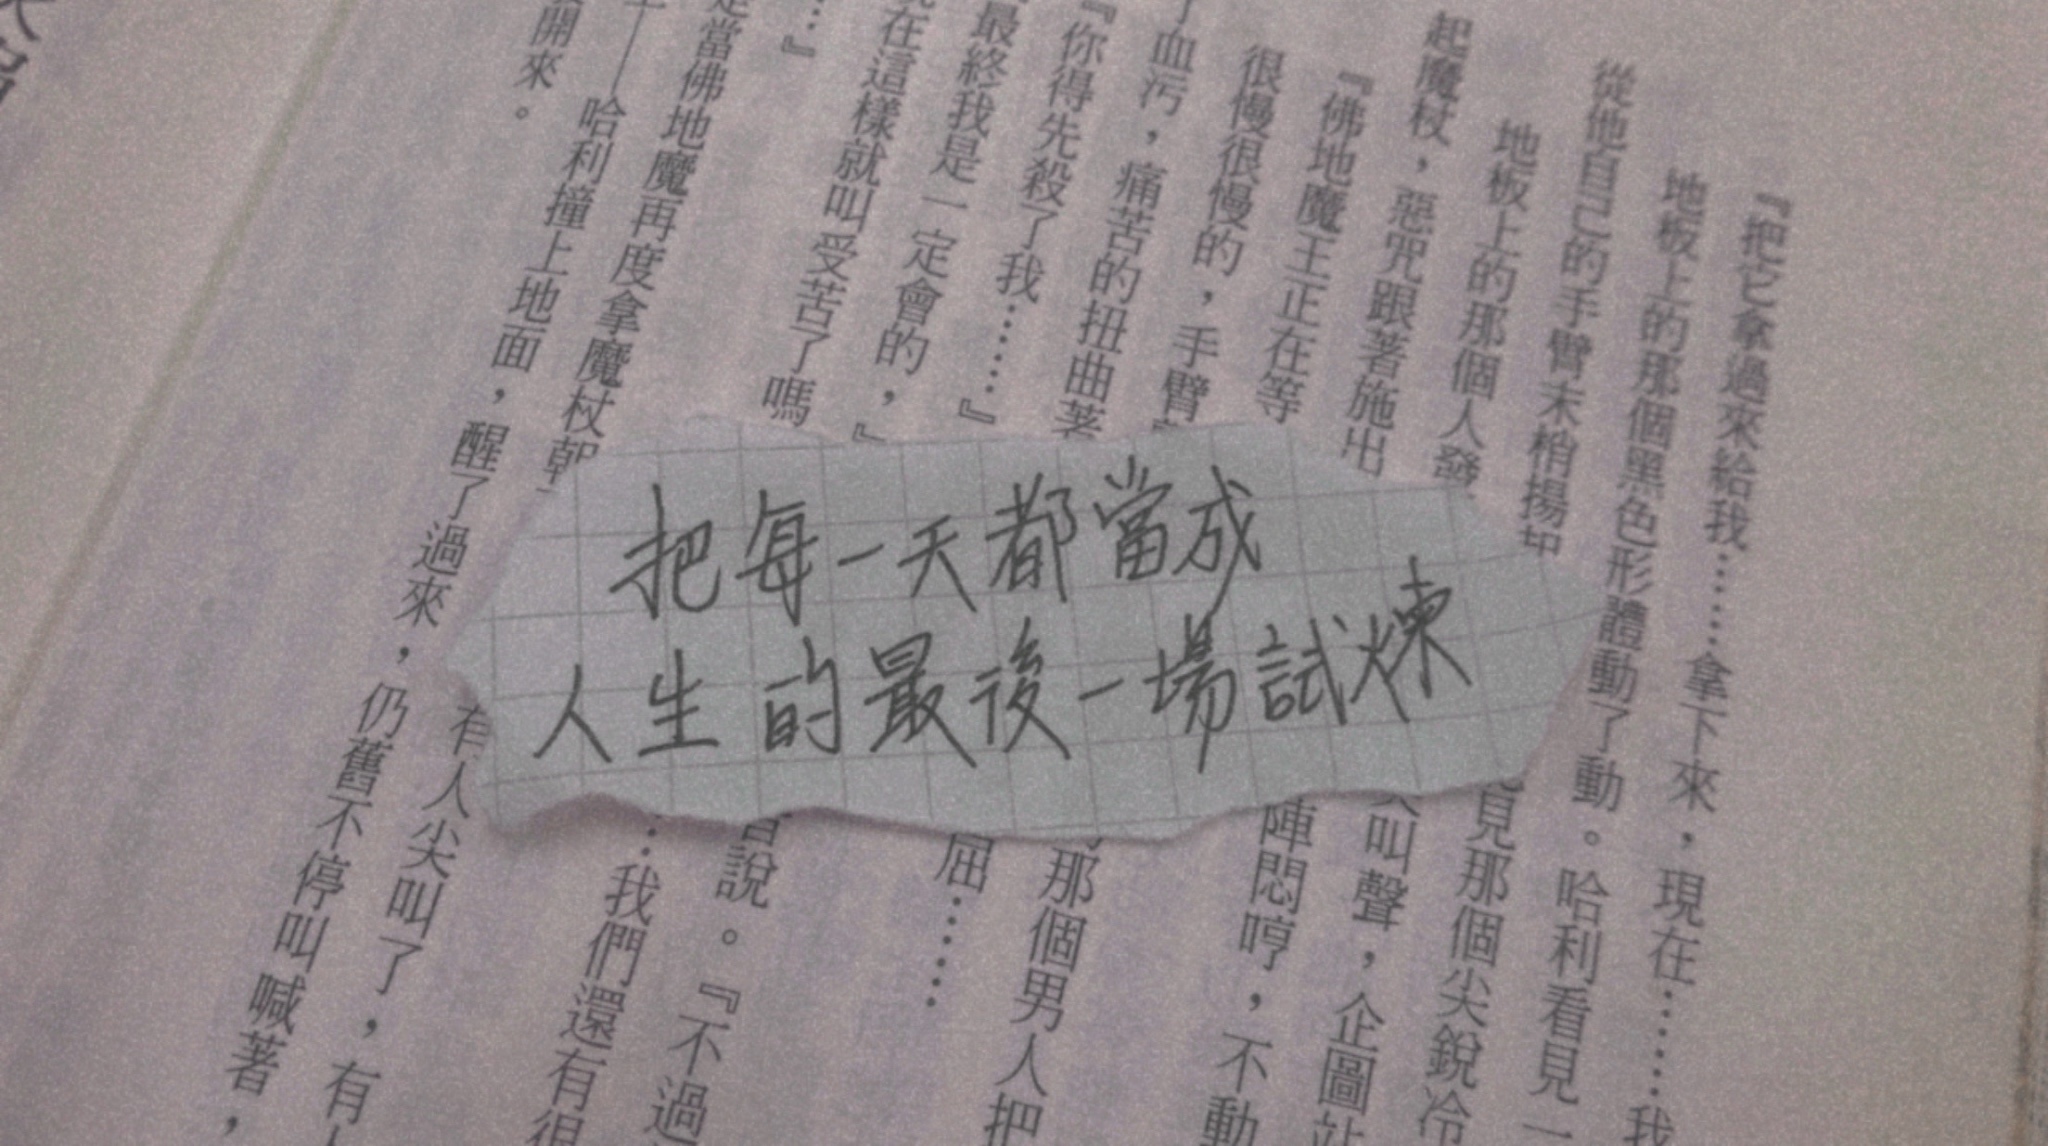 把每一天都當成
人生的最後一場試煉
『把它拿過來給我……拿下來，現在……我
地板上的那個黑色形體動了動。哈利看見一
從他自己的手臂末梢揚
見那個尖銳冷
地板上的那個人發
尖叫聲，企圖站
起魔杖，惡咒跟著施出
陣悶哼，不動
『佛地魔王正在等
很慢很慢的，手臂
那個男人把
了血污，痛苦的扭曲著
屈……
『你得先殺了我……』
最終我是一定會的，』
說。『不過
在這樣就叫受苦了嗎
……我們還有很
…』
當佛地魔再度拿魔杖朝
有人尖叫了，有人
——哈利撞上地面，醒了過來，仍舊不停叫喊著，
開來。